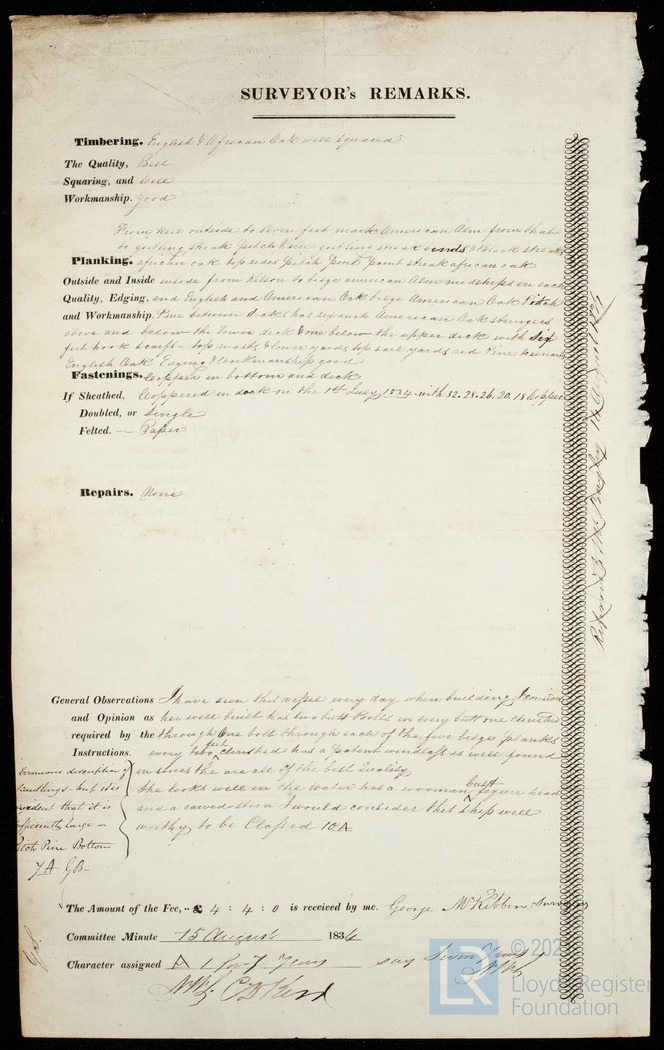 SURVEYOR's REMARKS.
Timbering. English & African Oak well squared
The Quality, Best
Squaring, and Well
Workmanship. Good
From keel outside to seven feet mark American Elm from that
to gutling streak pitch Pine gutling streak & Black streaks
Planking. african oak top sides Pitch Pine paint streak african oak
Outside and Inside inside from Kelson to bilge american Elm medships in each
Quality, Edging, end English and American Oak bilge American Oak Pitch
and Workmanship. Pine between decks has six inch American Oak stringers
above and below the lower deck & one below the upper deck with Six
feet hook scarfs top masts & lower yards top sail yards red Pine
English Oak Edging & Workmanship good
Fastenings. Copper in bottom and deck
If Sheathed, Coppered in dock on the 1st July 1834 with 32. 28. 26. 20. 18 Copper
Doubled, or Single
Felted. — Paper
Repairs. None
General Observations I have seen this vessel every day when building I consider
and Opinion as her well built has two butt Bolts in every butt one clinched
required by the through One bolt through each of the five bilge planks
Instructions. every two feet clinshed has a Patent windlass is well found
in stores the are all of the best Quality
She looks well in the water has a wooman bust figure head
and a carved stern I would consider this ship well
worthy to be Classed 10 A
Erroneous description of
Scantlings but it is
evident that it is
sufficiently large —
Pitch Pine Bottom
7 A GB—
The Amount of the Fee, - £ 4 : 4 : 0 is received by me. George McKibbin Surveyor
Committee Minute 15 August 1834
Character assigned A 1 for 7 Years say Seven Years
© 202
LR
Lloyd's Register
Foundation